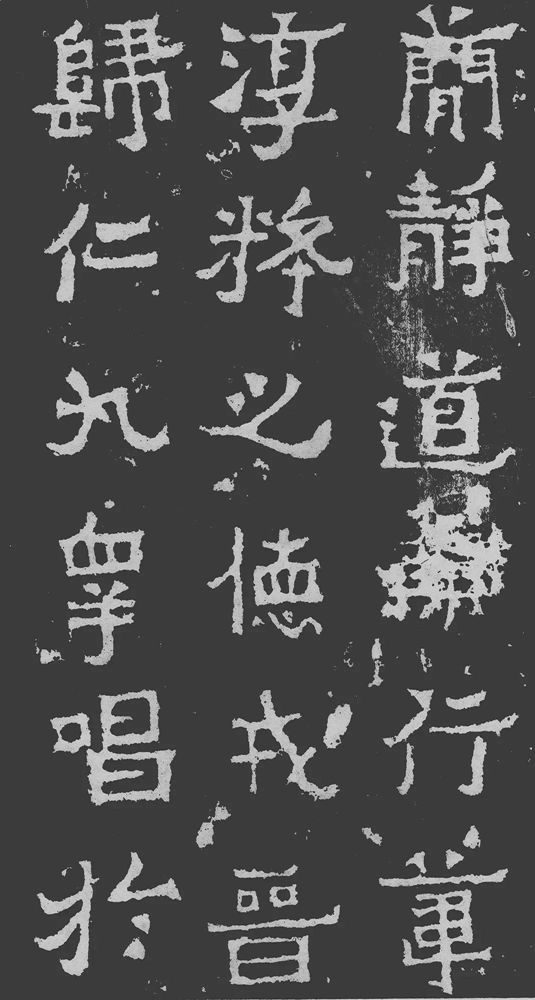 簡靜道行葦
淳粹之德戎晉
歸仁九皋唱於